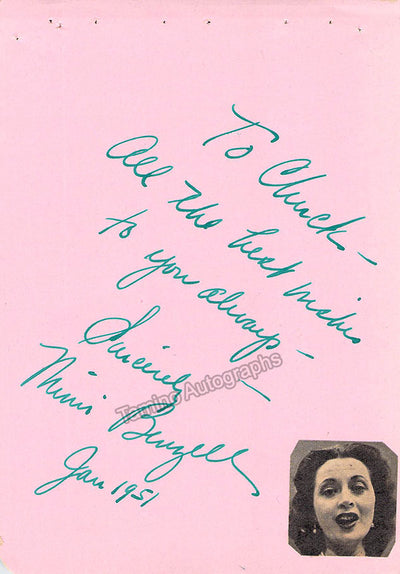 To Chuck –
All the best wishes
to you always –
Sincerely –
Mimi Benzell
Jan 1951
Tamino Autographs